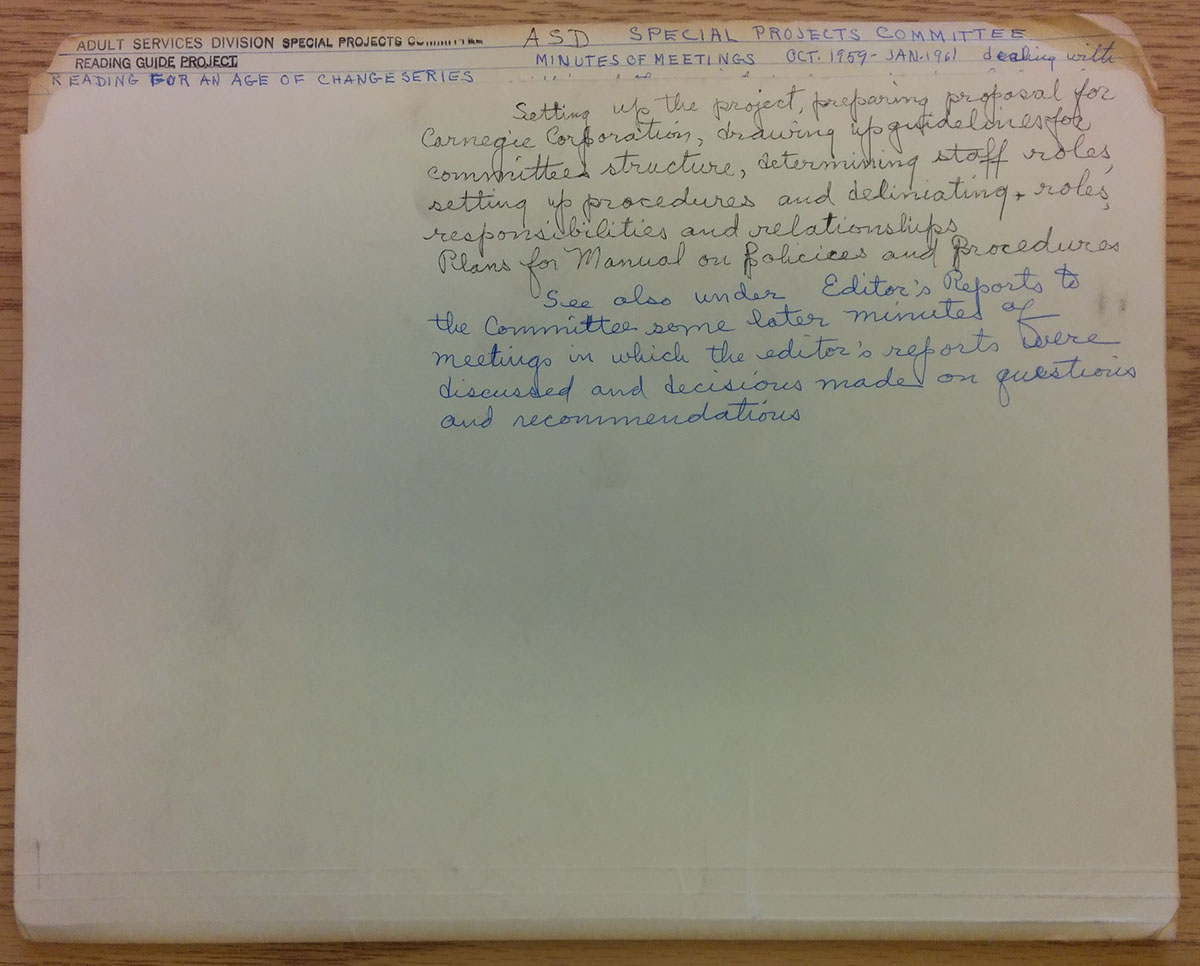 ADULT SERVICES DIVISION SPECIAL PROJECTS
READING GUIDE PROJECT
READING FOR AN AGE OF CHANGE SERIES
ASD SPECIAL PROJECTS COMMITTEE
MINUTES OF MEETINGS OCT. 1959 - JAN. 1961 dealing with
Setting up the project, preparing proposal for
Carnegie Corporation, drawing up guidelines for
committee structure, determining staff roles,
setting up procedures and deliniating roles,
responsibilities and relationships
Plans for Manual on Policices and Procedures
See also under Editor's Reports to
the Committee some later minutes of
meetings in which the editor's reports were
discussed and decisions made on questions
and recommendations